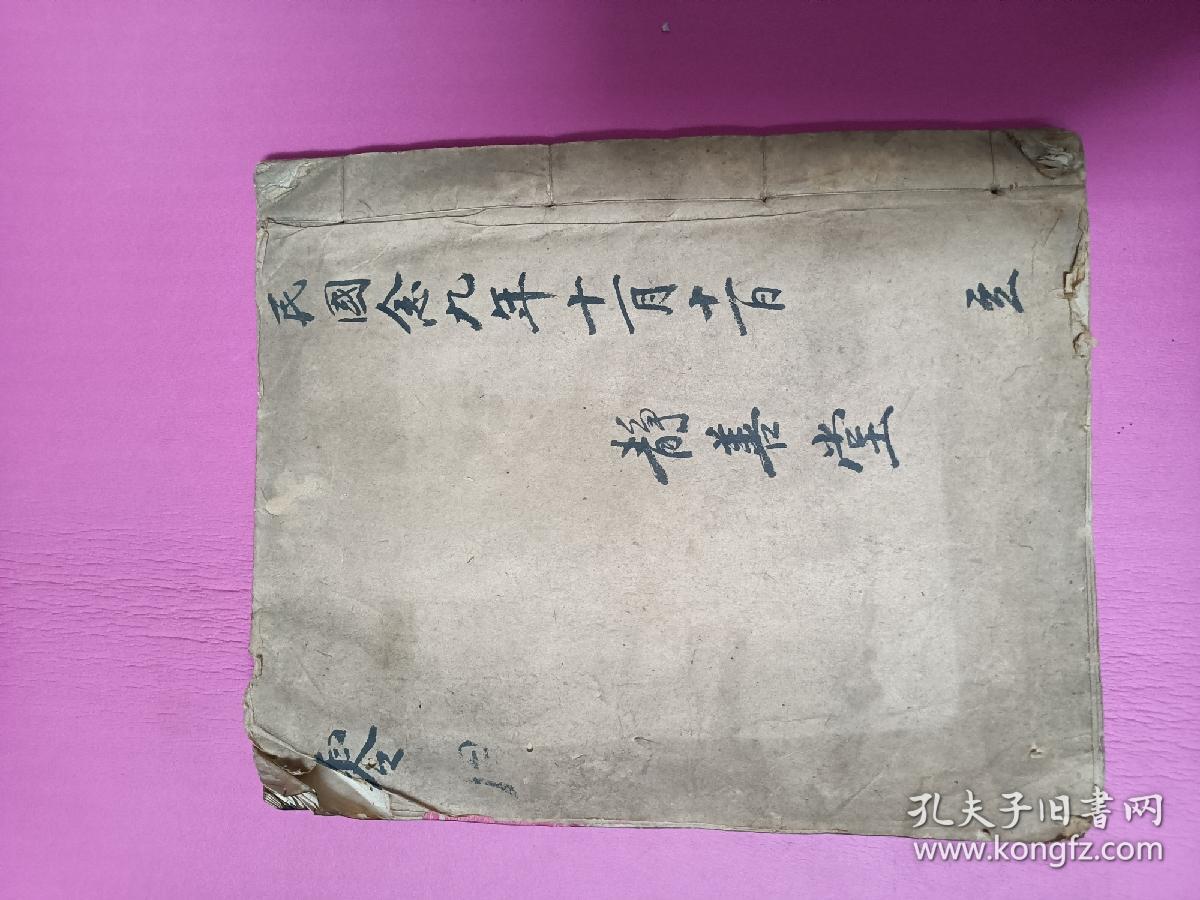 民國念九年十一月十一日
立
静善堂
孔夫子旧书网
www.kongfz.com